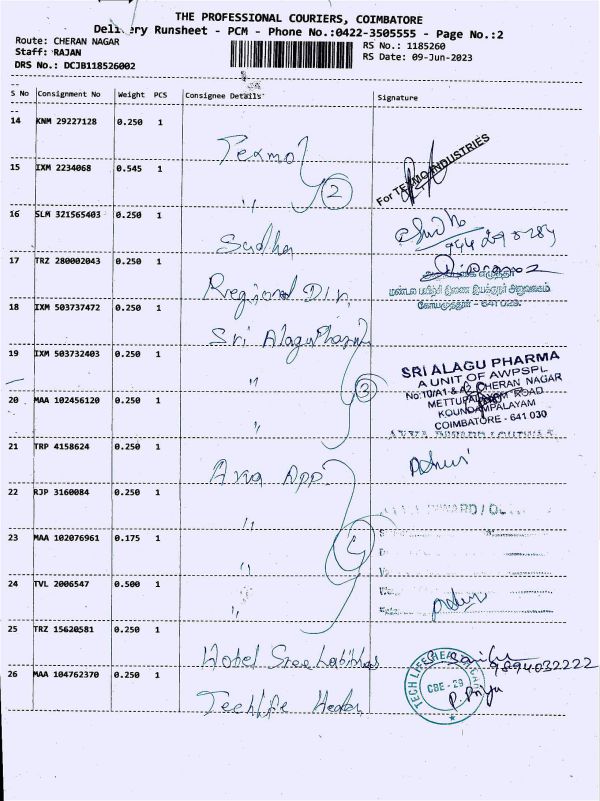 THE PROFESSIONAL COURIERS, COIMBATORE
Delivery Runsheet - PCM - Phone No.:0422-3505555 - Page No.:2
Route: CHERAN NAGAR
RS No.: 1185260
Staff: RAJAN
RS Date: 09-Jun-2023
DRS No.: DCJB118526002
S No Consignment No Weight PCS Consignee Details Signature
14 KNM 29227128 0.250 1
Texmo
For TEXMO INDUSTRIES
15 IXM 2234068 0.545 1
"
2
16 SLM 321565403 0.250 1
Sudha
17 TRZ 280002043 0.250 1
Regional Dir.
மண்டல பயிற்சி இணை இயக்குநர் அலுவலகம்
கோயமுத்தூர் - 641 029.
18 IXM 503737472 0.250 1
Sri Alagu Pharma
19 IXM 503732403 0.250 1
"
3
SRI ALAGU PHARMA
A UNIT OF AWPSPL
No:10/A1 & A2, CHERAN NAGAR
METTUPALAYAM ROAD
KOUNDAMPALAYAM
COIMBATORE - 641 030
20 MAA 102456120 0.250 1
"
21 TRP 4158624 0.250 1
App
22 RJP 3160084 0.250 1
"
23 MAA 102076961 0.175 1
"
24 TVL 2006547 0.500 1
"
25 TRZ 15620581 0.250 1
Hotel Sree
9894032222
26 MAA 104762370 0.250 1
Techlife
TECH LIFE
CBE - 29
P. Priya